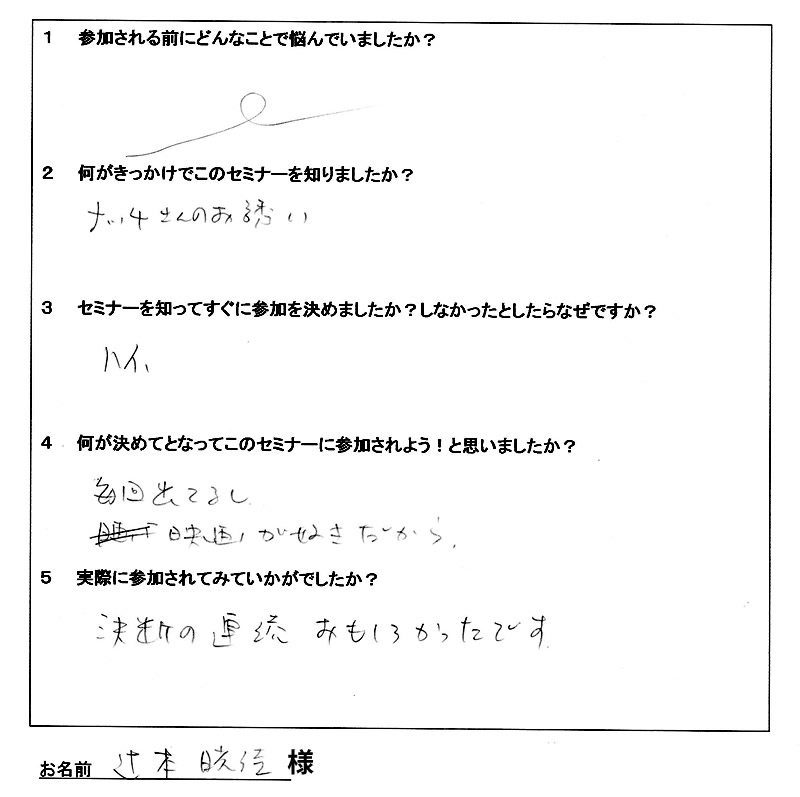 1 参加される前にどんなことで悩んでいましたか？
2 何がきっかけでこのセミナーを知りましたか？
ナッチさんのお誘い
3 セミナーを知ってすぐに参加を決めましたか？しなかったとしたらなぜですか？
ハイ、
4 何が決めてとなってこのセミナーに参加されよう！と思いましたか？
毎回出てるし
「映画」が好きだから。
5 実際に参加されてみていかがでしたか？
決断の連続 おもしろかったです
お名前 辻本 様